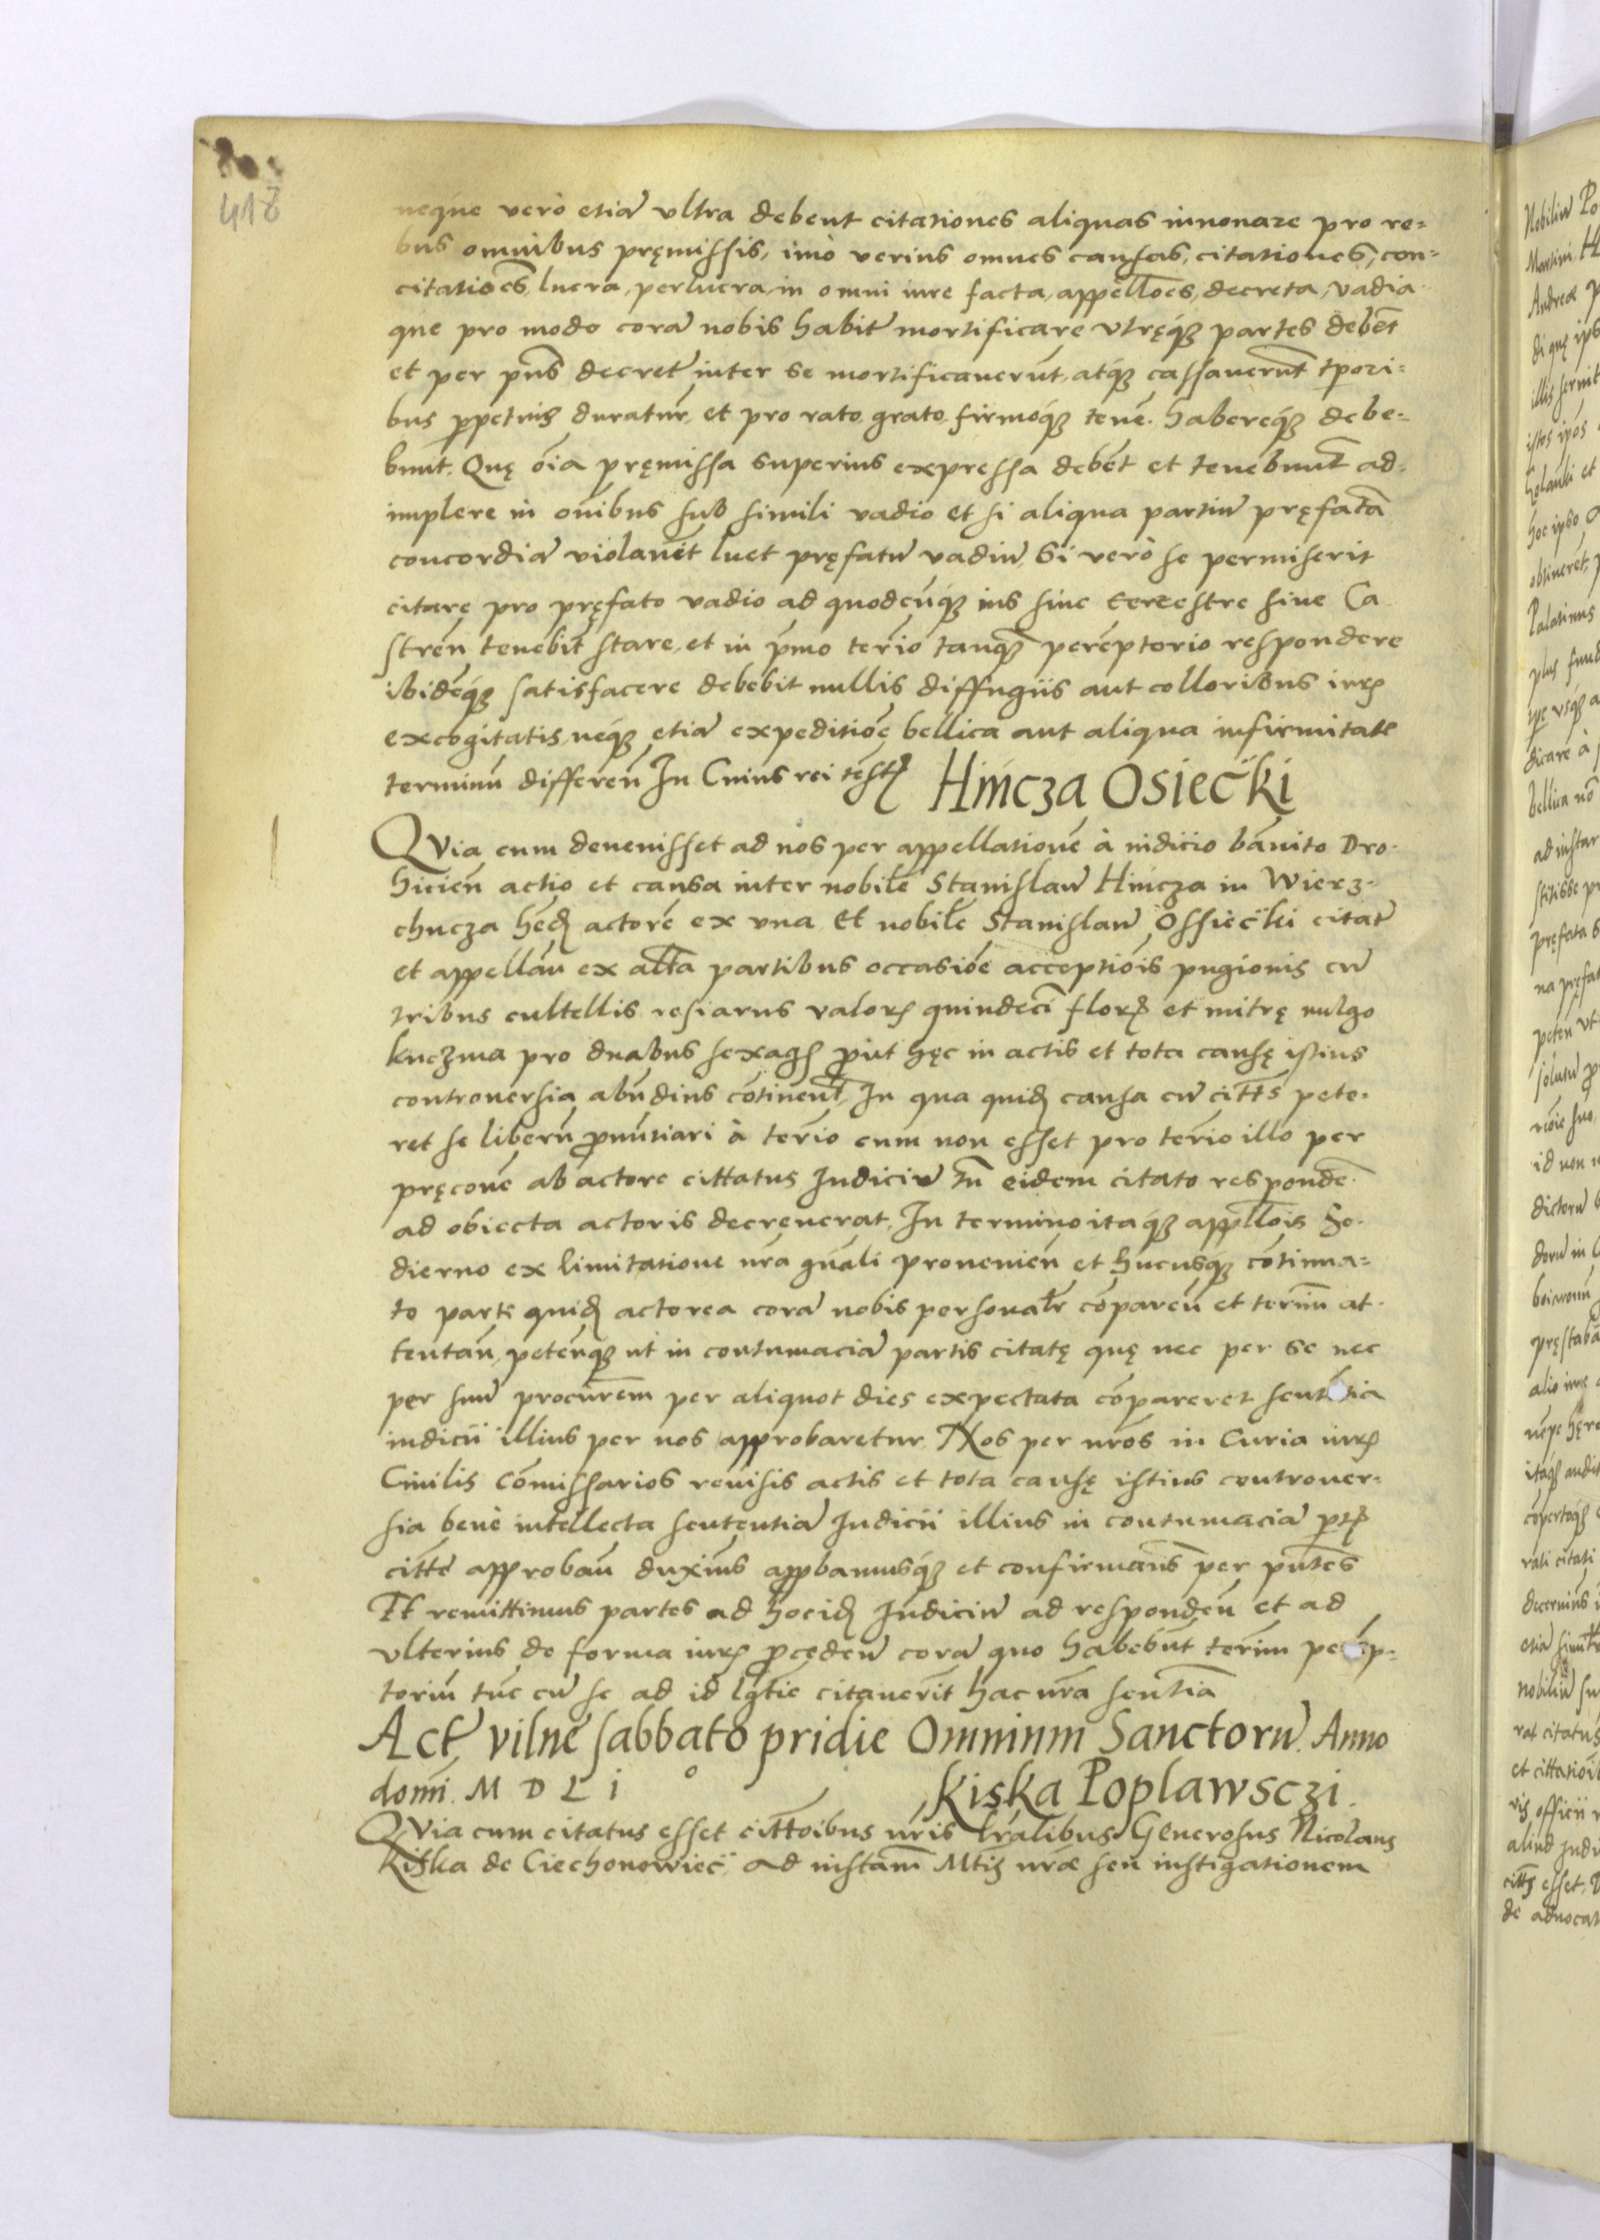 418
neque verò etiā vltra debent citationes aliquas innouare pro re-
bus omnibus pręmissis, imò verius omnes causas, citationes, con-
citatiões, lucra, perlucra, in omni iure facta, appellões, decreta, vadia
que pro modo corā nobis habit mortificare vtręq; partes debēt
et per pñs decret inter se mortificauerūt, atq; cassauerunt tpori-
bus ppetuis duratur, et pro rato, grato, firmoq; tene. habereq; debe-
bunt. Quę oĩa pręmissa superius expressa debēt et tenebunt ad-
implere in oñibus sub simili vadio et si aliqua partiū pręfatā
concordiā violauēit luet pręfatū vadiū, Si verò se permiserit
citare pro pręfato vadio ad quodcūq; ius siue terrestre siue Ca
streñ tenebit stare, et in pmo terio tanq; perēptorio respondere
ibidēq; satisfacere debebit nullis diffugiis aut colloribus iurȝ
excogitatis, neq; etiā expeditiõe bellica aut aliqua infirmitate
terminū differeñ In Cuius rei testȝ Hincza Osiecki
QVia cum deuenisset ad nos per appellationē à iudicio bānito Dro-
hicieñ actio et causa inter nobilē Stanislaū Hincza in Wierz-
chucza hęd actorē ex vna Et nobilē Stanislaū Ossiecki citat
et appellañ ex alta partibus occasiõe acceptiõis pugionis cū
tribus cultellis resiarus valorȝ quindeci florȝ et mitrę uulgo
kuczma pro duabus sexagȝ put hęc in actis et tota causę istius
controuersia abūdius cōtinent, In qua quid causa cū citts pete-
ret se liberū pnūtiari à terio cum non esset pro terio illo per
pręconē ab actore cittatus Iudiciū tñ eidem citato respondē
ad obiecta actoris decreuerat, In termino itaq; appllõis ho-
dierno ex limitatione nra gñali prouenieñ et hucusq; cōtinua-
to parte quid actorea corā nobis personalr cōpareñ et termū at-
tentañ, peteñq; ut in contumaciā partis citatę quę nec per se nec
per suū procurem per aliquot dies expectata cōpareret sententia
iudicii illius per nos approbaretur. Nos per nros in Curia iurȝ
Ciuilis Cōmissarios reuisis actis et tota causę istius controuer-
sia benè intellecta sententiā Iudicii illius in contumaciā ptȝ
citte approbañ duxims appbamusq; et confirmams per pntes
Et remittimus partes ad hocid Iudiciū ad respondeñ et ad
vlterius de forma iurȝ pcędeñ corā quo habebūt termū perēp-
toriū tūc cū se ad id lgtie citauerīt hac nra sentia
Act vilnę sabbato pridie Omnium Sanctorū. Anno
domi. M D L i° Kiska Poplawsczi.
QVia cum citatus esset cittõibus nris lralibus Generosus Nicolaus
Kiska de Ciechonowiec ad instam Mtis nræ seu instigationem